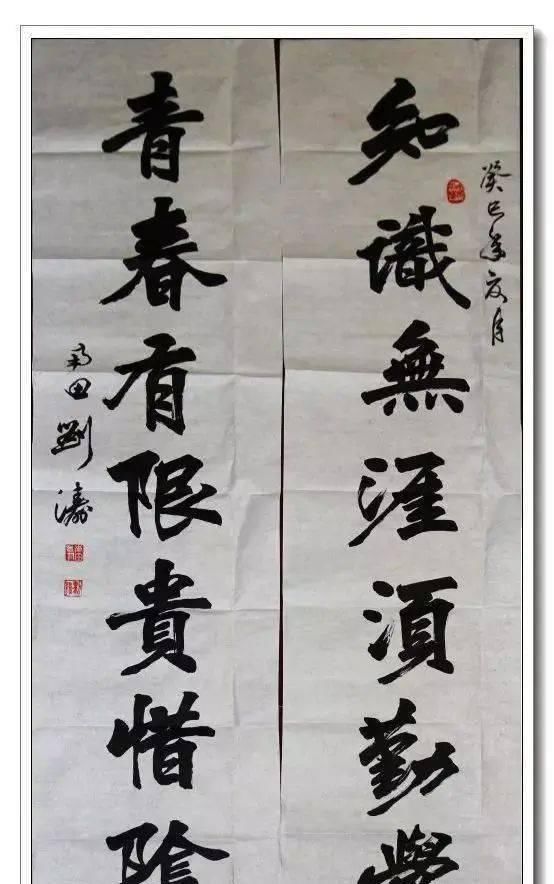 癸巳年夏月
知識無涯須勤學
青春有限貴惜陰
雨田劉濤